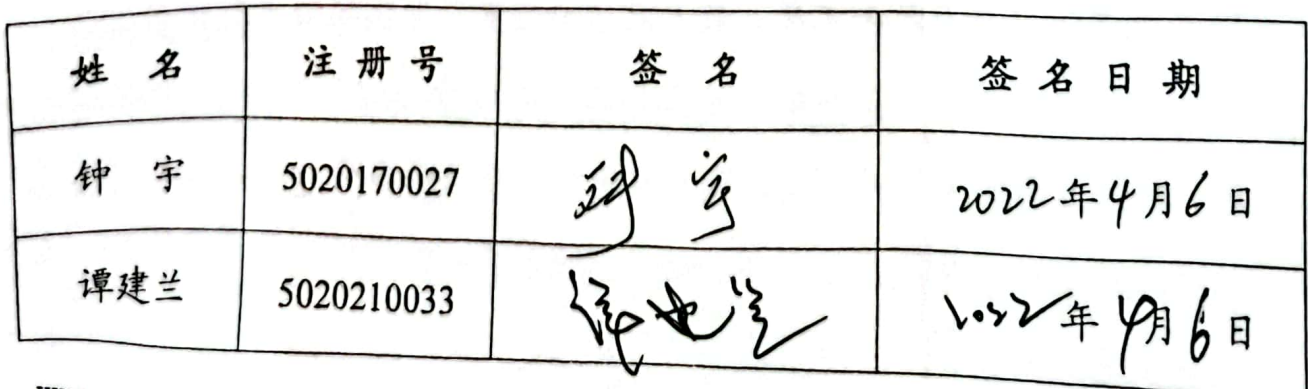 姓 名 注 册 号 签 名 签 名 日 期
钟 宇 5020170027 钟 宇 2022年4月6日
谭建兰 5020210033 谭建兰 2022年4月6日